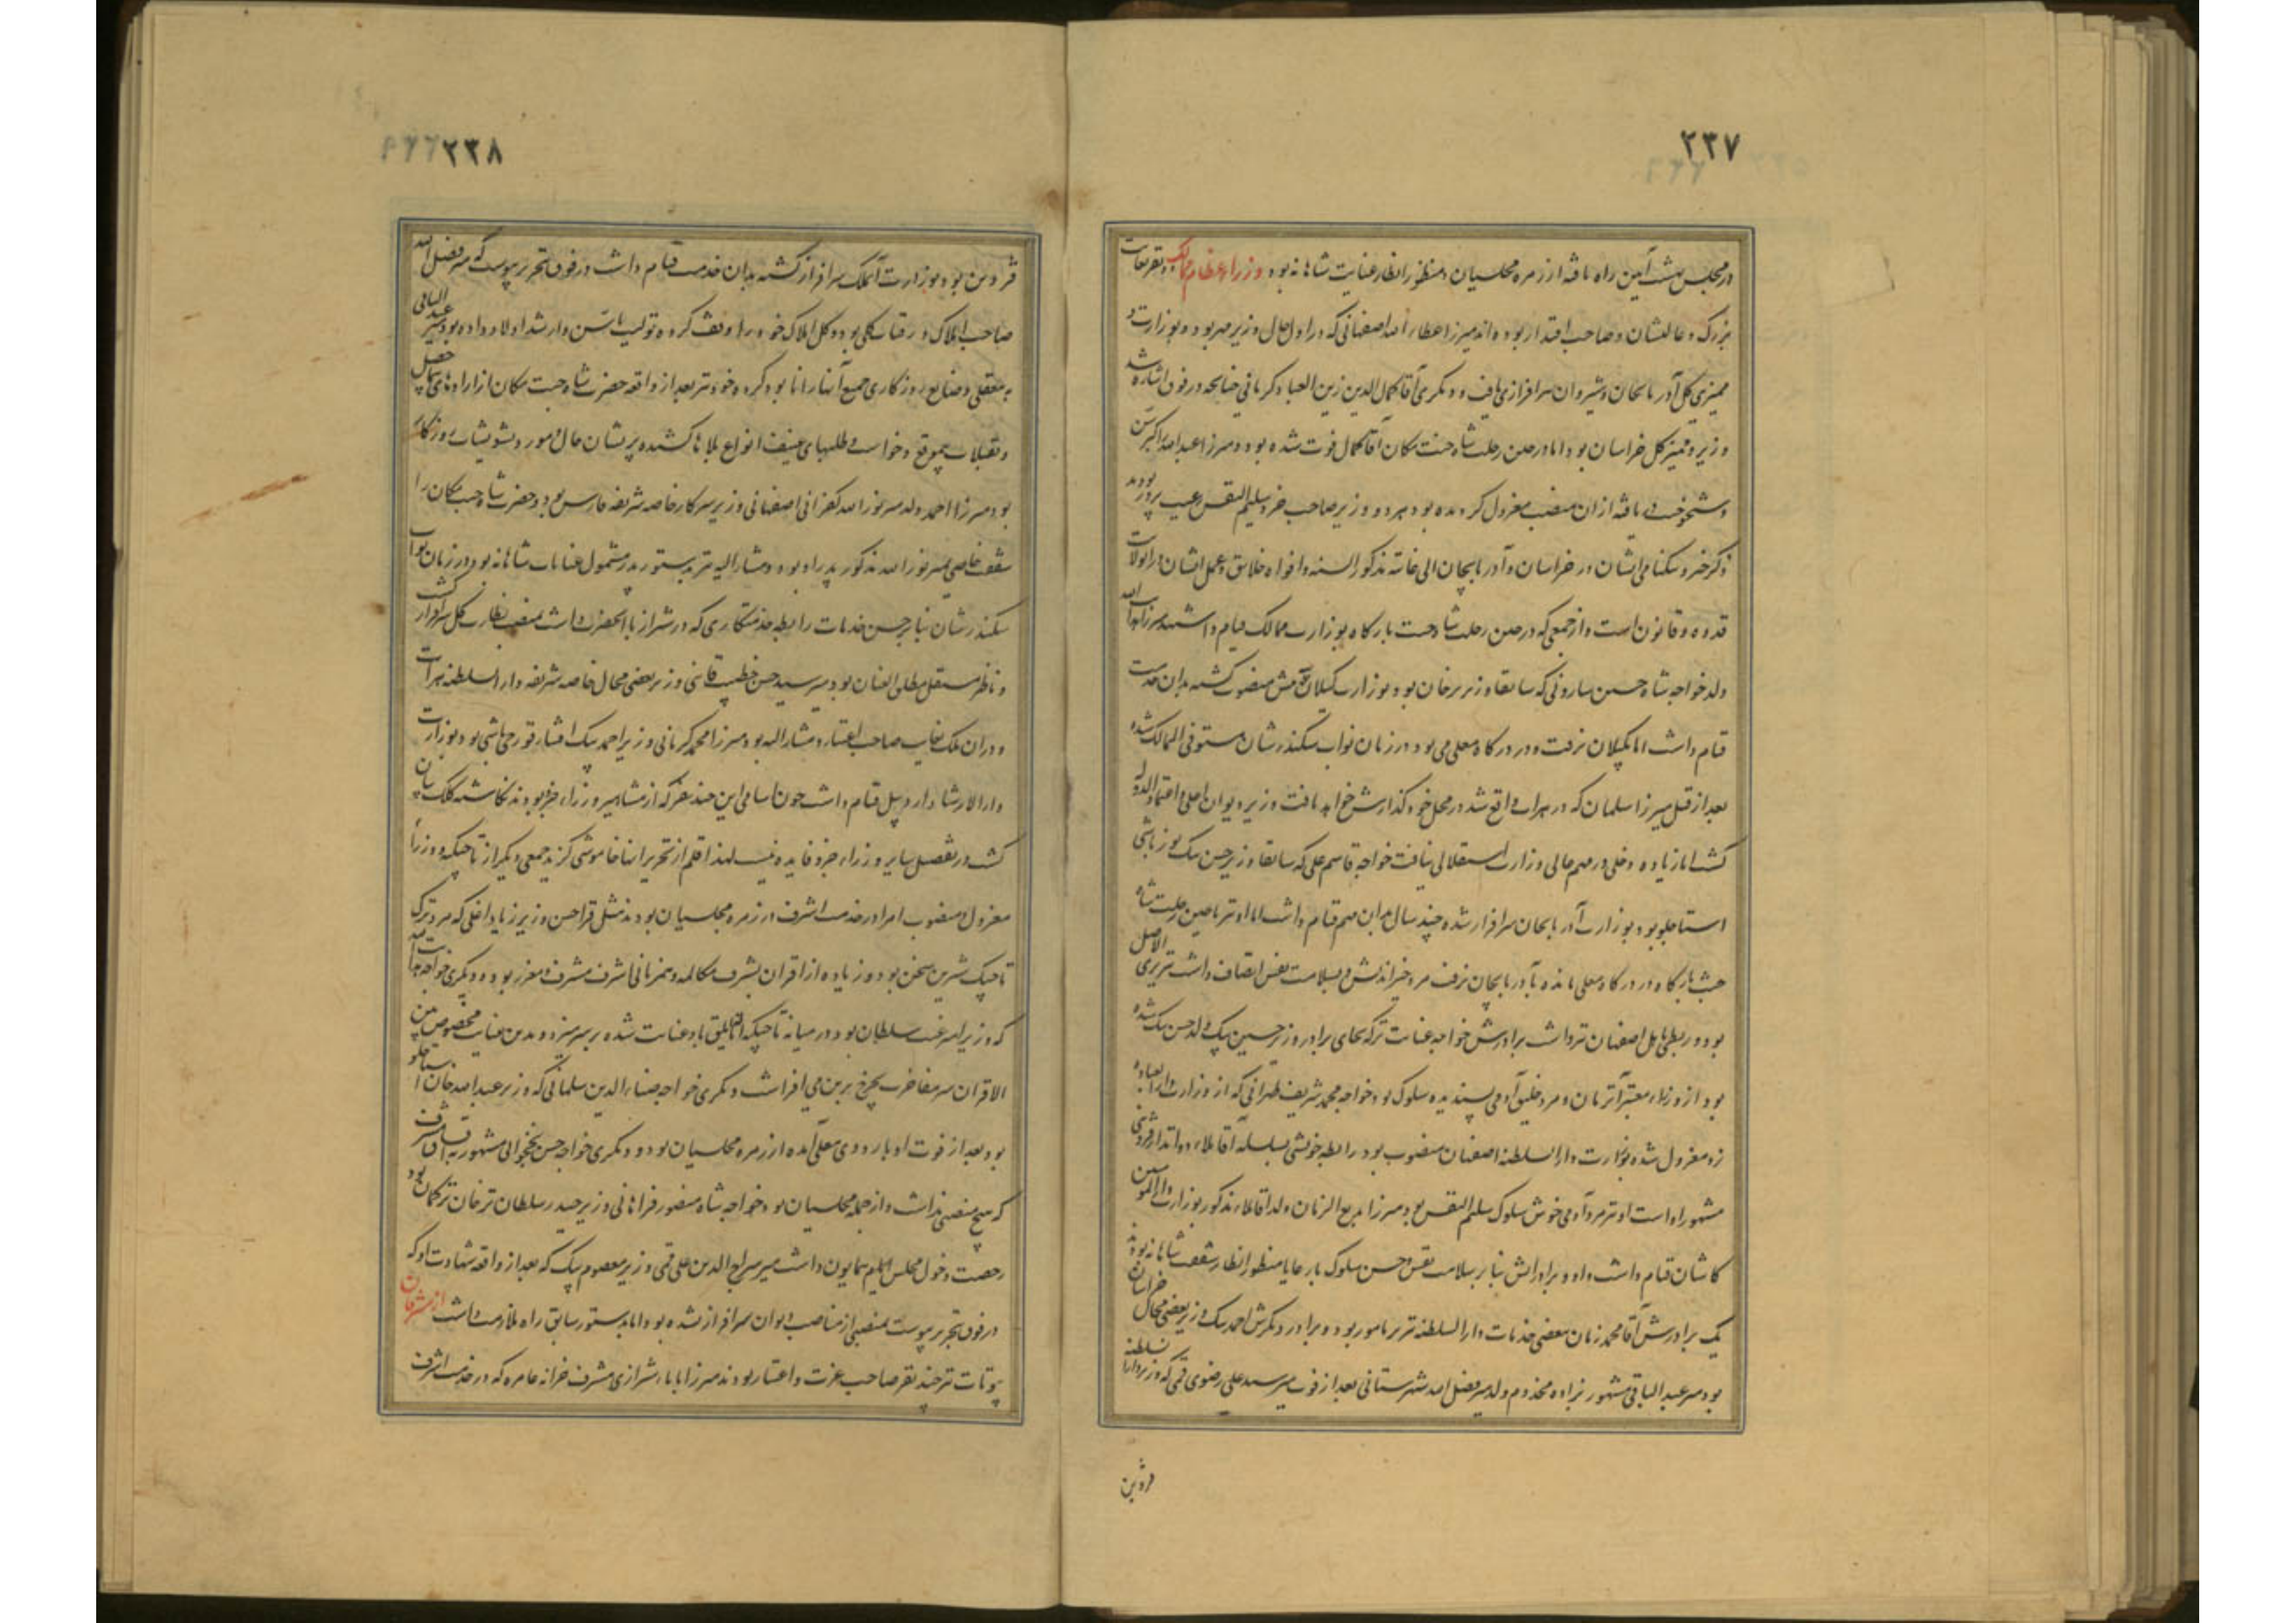 ۲۳۷
در مجلس بهشت آیین راه یافته از زمره مجلسیان و منظور انظار عنایت شاهانه بود وزراء عظام ممالک
بزرگ و عالیشان و صاحب اقتدار بوده‌اند میرزا عطاء الله اصفهانی که در اول حال وزیر میر بود و بوزارت و
ممیزی کل آذربایجان و شیروان سرافرازی یافت و دیگری آقا کمال الدین زین العباد کرمانی چنانچه در فوق اشاره شد
وزیر و ممیز کل خراسان بود اما در حین رحلت شاه جنت مکان آقا کمال فوت شده بود و میرزا عبد الله اکبر سن
و شیخوخت دریافته از آن منصب معزول گردیده بود هر دو وزیر صاحب خرد سلیم النفس رعیت پرور بودند
ذکر خیر و نیکنامی ایشان در خراسان و آذربایجان الی غایته مذکور السنه و افواه خلایق و عمل ایشان در آن ولایات
قدوه و قانون است و از جمعی که در حین رحلت شاه جنت بارگاه بوزارت ممالک قیام داشتند میرزا هدایت الله
ولد خواجه شاه حسین ساروقی که سابقا وزیر زرخان بود بوزارت گیلان بیه پیش منصوب گشته بدان خدمت
قیام داشت اما بگیلان نرفت و در درگاه معلی می بود در زمان نواب سکندر شان مستوفی الممالک شده
بعد از قتل میرزا سلمان که در هرات واقع شد در محل خود گذارش خواهد یافت وزیر دیوان اعلی و اعتماد الدوله
گشت اما زیاده دخلی در مهم حالی وزارت استقلالی نیافت خواجه قاسم علی که سابقا وزیر حسن بیک یوزباشی
استاجلو بود بوزارت آذربایجان سرافراز شده چند سال بدان مهم قیام داشت اما او نیز تا حین رحلت شاه
جنت بارگاه در درگاه معلی مانده بآذربایجان نرفت مرد خیراندیش و بسلامت نفس اتصاف داشت تبریزی الاصل
بود و ربطی باهل اصفهان نیز داشت برادرش خواجه عنایت ترکه بجای برادر وزیر حسین بیک ولد حسن بیک شده
بود از وزراء معتبر آن زمان و مرد خلیق آدمی پسندیده سلوک بود خواجه محمد شریف طهرانی که از وزارت دار العباده
یزد معزول شده بوزارت دار السلطنه اصفهان منصوب بود رابطه خویشی بسلسله آقا ملاء دواتدار قزوینی
مشهور او راست او نیز مرد آدمی خوش سلوک سلیم النفس بود میرزا بدیع الزمان ولد آقا ملاء مذکور بوزارت دار المومنین
کاشان قیام داشت و او و برادرانش بنابر سلامت نفس و حسن سلوک با رعایا منظور انظار شفقت شاهانه بودند
یک برادرش آقا محمد زمان ببعضی خدمات دار السلطنه تبریز مامور بود و برادر دیگرش احمد بیک وزیر بعضی محال خراسان
بود میر عبد الباقی مشهور بزاده مخدوم ولد میر فضل الله شهرستانی بعد از فوت میر سید علی رضوی قمی که وزیر دار السلطنه
قزوین
۲۳۸
قزوین بود بوزارت آن ملک سرافراز گشته بدان خدمت قیام داشت در فوق تحریر پیوست که میر فضل الله
صاحب املاک و رقبات کلی بود و کل املاک خود را وقف کرده تولیت باسن و ارشد اولاد داده بود میر عبد الباقی
به معقلی و ضایع روزگاری جمیع آنها را نابود کرد و خود نیز بعد از واقعه حضرت شاه جنت مکان از اراده‌های بیحاصل
و تقبلات بیموقع و خواست طلبیهای عنیف انواع بلاها کشیده پریشان حال و مورد تشویشات روزگار
بود میرزا احمد ولد میر نور الله کفرانی اصفهانی وزیر سرکار خاصه شریفه فارس بود و حضرت شاه جنت مکان را
شفقت خاصی بمیر نور الله مذکور پدر او بود و مشار الیه نیز بدستور پدر مشمول عنایات شاهانه بود و در زمان نواب
سکندر شان بنابر حسن خدمات و رابطه خدمتکاری که در شیراز با آنحضرت داشت بمنصب نظارت کل سرافراز گشت
و ناظر مستقل مطلق العنان بود میر سید حسن خطیب قاینی وزیر بعضی محال خاصه شریفه دار السلطنه هرات
و در آن ملک بغایت صاحب اعتبار و مشار الیه بود میرزا محمد کرمانی وزیر احمد بیک افشار قورچی باشی بود بوزارت
دار الارشاد اردبیل قیام داشت چون اسامی این چند نفر که از مشاهیر وزراء جزو بودند نگاشته کلک بیان
گشت در تفصیل سایر وزراء جزو فایده نیست لهذا قلم از تحریر آنها خاموشی گزید جمعی دیگر از تاجیکیه و وزراء
معزول و منصوب امرا در خدمت اشرف در زمره مجلسیان بودند مثل قرا حسن وزیر زیاد اغلی که مرد ترک
تاجیک شیرین سخن بود و زیاده از اقران بشرف مکالمه و همزبانی اشرف مشرف و معزز بوده و دیگری خواجه هدایت الله
که وزیر امیر غیب سلطان بود در میانه تاجیکیه اتاقه بیلق باو عنایت شده بر سر میزد و بدین عنایت مخصوص من بین
الاقران سر مفاخرت بچرخ برین می افراشت دیگری خواجه ضیاء الدین سلمانی که وزیر عبد الله خان استاجلو
بود بعد از فوت او باردوی معلی آمده از زمره مجلسیان بود و دیگری خواجه حسن نخجوانی مشهور به
که هیچ منصبی نداشت و از جمله مجلسیان بود خواجه شاه منصور فراهانی وزیر حیدر سلطان ترخان ترکمان بود
رخصت دخول مجلس همایون داشت میر سراج الدین علی قمی وزیر معصوم بیک که بعد از واقعه شهادت او که
در فوق تحریر پیوست بمنصبی از مناصب دیوان سرافراز نشده بود اما بدستور سابق راه ملازمت داشت از مشرفان
بیوتات نیز چند نفر صاحب عزت و اعتبار بودند میرزا باباء شیرازی مشرف خزانه عامره که در خدمت اشرف